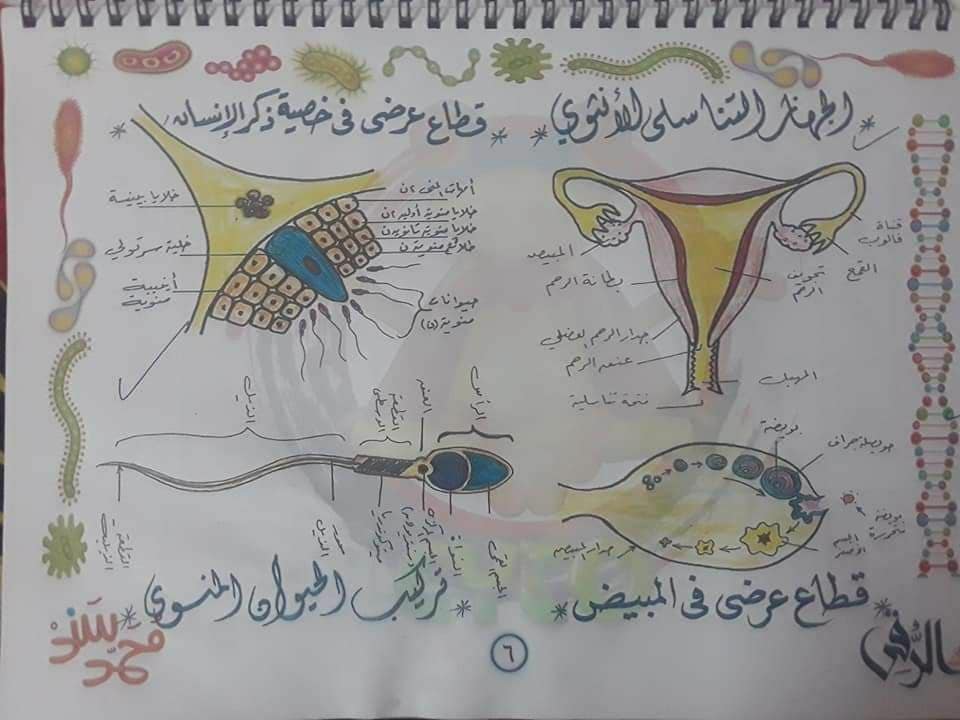 الجهاز التناسلي الأنثوي
قناة فالوب
القمع
تجويف الرحم
المبيض
بطانة الرحم
جدار الرحم العضلي
عنق الرحم
المهبل
فتحة تناسلية
قطاع عرضي في خصية ذكر الإنسان
خلايا بينية
خلية سرتولي
أنيبيبة منوية
أمهات المنى ٢ن
خلايا منوية أولية ٢ن
خلايا منوية ثانوية ن
طلائع منوية ن
حيوانات منوية (ن)
حويصلة جراف
بويضة
بويضة متحررة
الجسم الأصفر
جدار المبيض
قطاع عرضي في المبيض
الرأس
العنق
القطعة الوسطى
الذيل
الجسم القمي
النواة
ميتوكوندريا
محور الذيل
القطعة الذيلية
تركيب الحيوان المنوي
محمد سند
٦